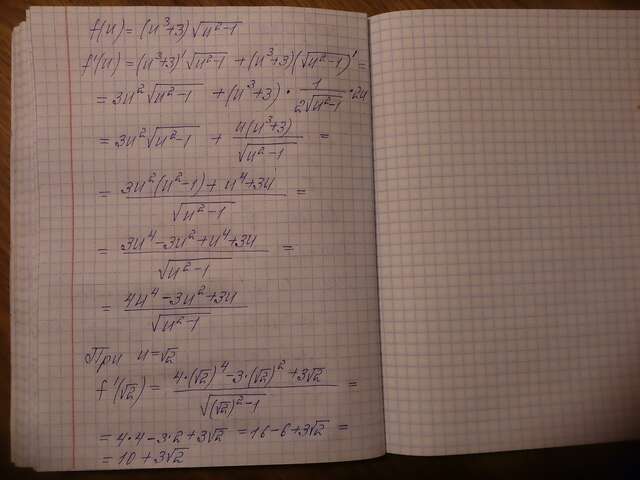 f(u) = (u³+3)√(u²-1)
f'(u) = (u³+3)'√(u²-1) + (u³+3)(√(u²-1))' =
= 3u²√(u²-1) + (u³+3) · 1/(2√(u²-1)) · 2u
= 3u²√(u²-1) + u(u³+3)/√(u²-1) =
= (3u²(u²-1) + u⁴+3u)/√(u²-1) =
= (3u⁴-3u²+u⁴+3u)/√(u²-1) =
= (4u⁴-3u²+3u)/√(u²-1)
При u=√2
f'(√2) = (4·(√2)⁴-3·(√2)²+3√2)/√((√2)²-1) =
= 4·4-3·2+3√2 = 16-6+3√2 =
= 10+3√2